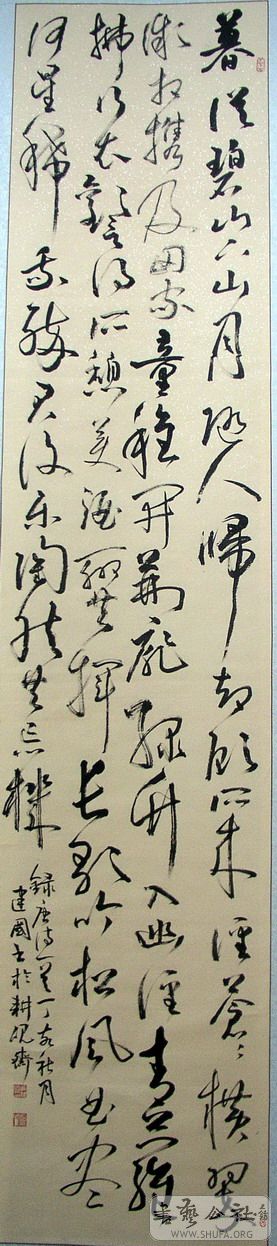 暮從碧山下山月随人歸却顧所來徑蒼々橫翠
微相携及田家童稚開荆扉緑竹入幽徑青蘿
拂行衣歡言得所憩美酒聊共揮長歌吟松風曲盡
河星稀我醉君復樂陶然共忘機
録唐詩一首丁亥秋月
建國書於耕硯齋
書藝公社
WWW.SHUFA.ORG